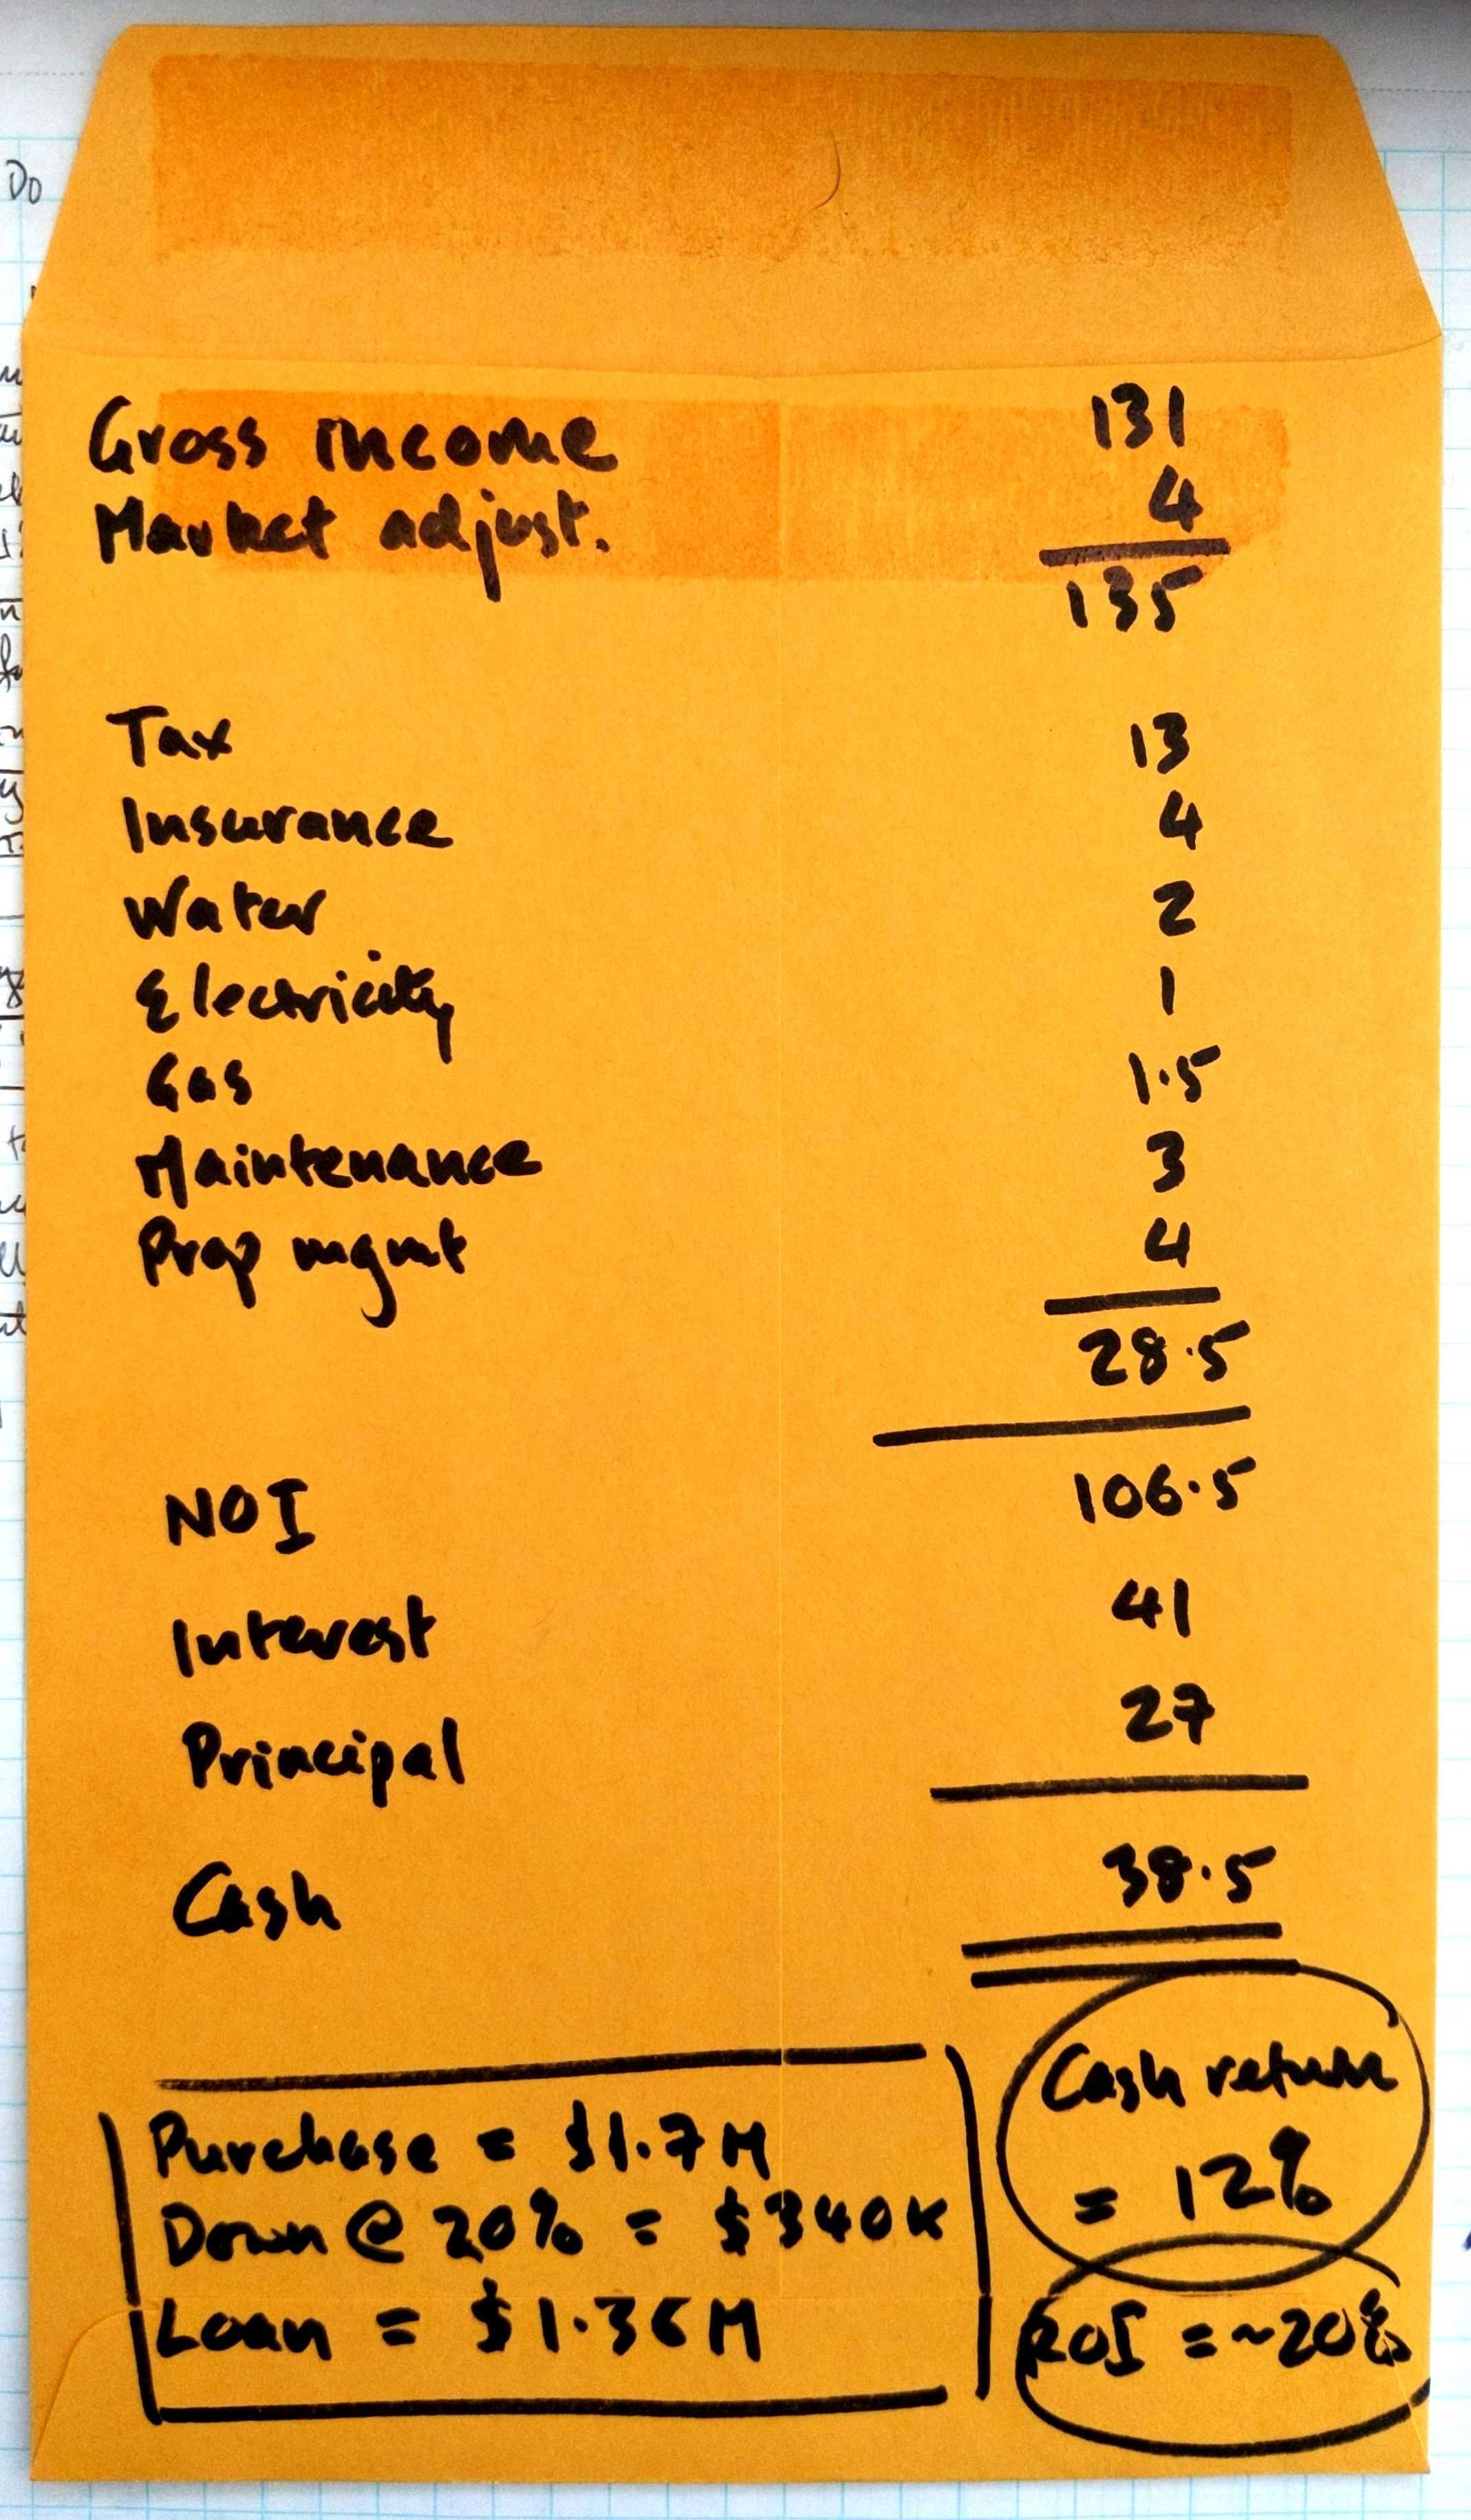 Do
Gross income 131
Market adjust. 4
135
Tax 13
Insurance 4
Water 2
Electricity 1
Gas 1.5
Maintenance 3
Prop mgmt 4
28.5
NOI 106.5
Interest 41
Principal 27
Cash 38.5
Cash return
= 12%
Purchase = $1.7M
Down @ 20% = $340K
Loan = $1.36M
ROI = ~20%